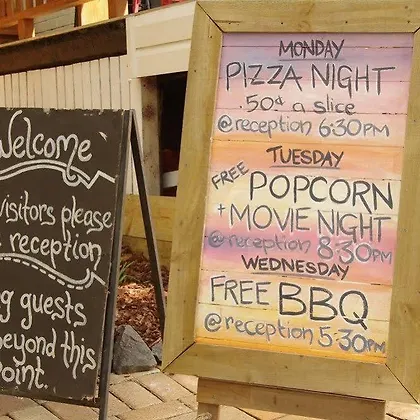 Welcome
visitors please
reception
guests
beyond this
point.
MONDAY
PIZZA NIGHT
50¢ a slice
@reception 6:30PM
TUESDAY
FREE POPCORN
+ MOVIE NIGHT
@reception 8:30PM
WEDNESDAY
FREE BBQ
@reception 5:30PM